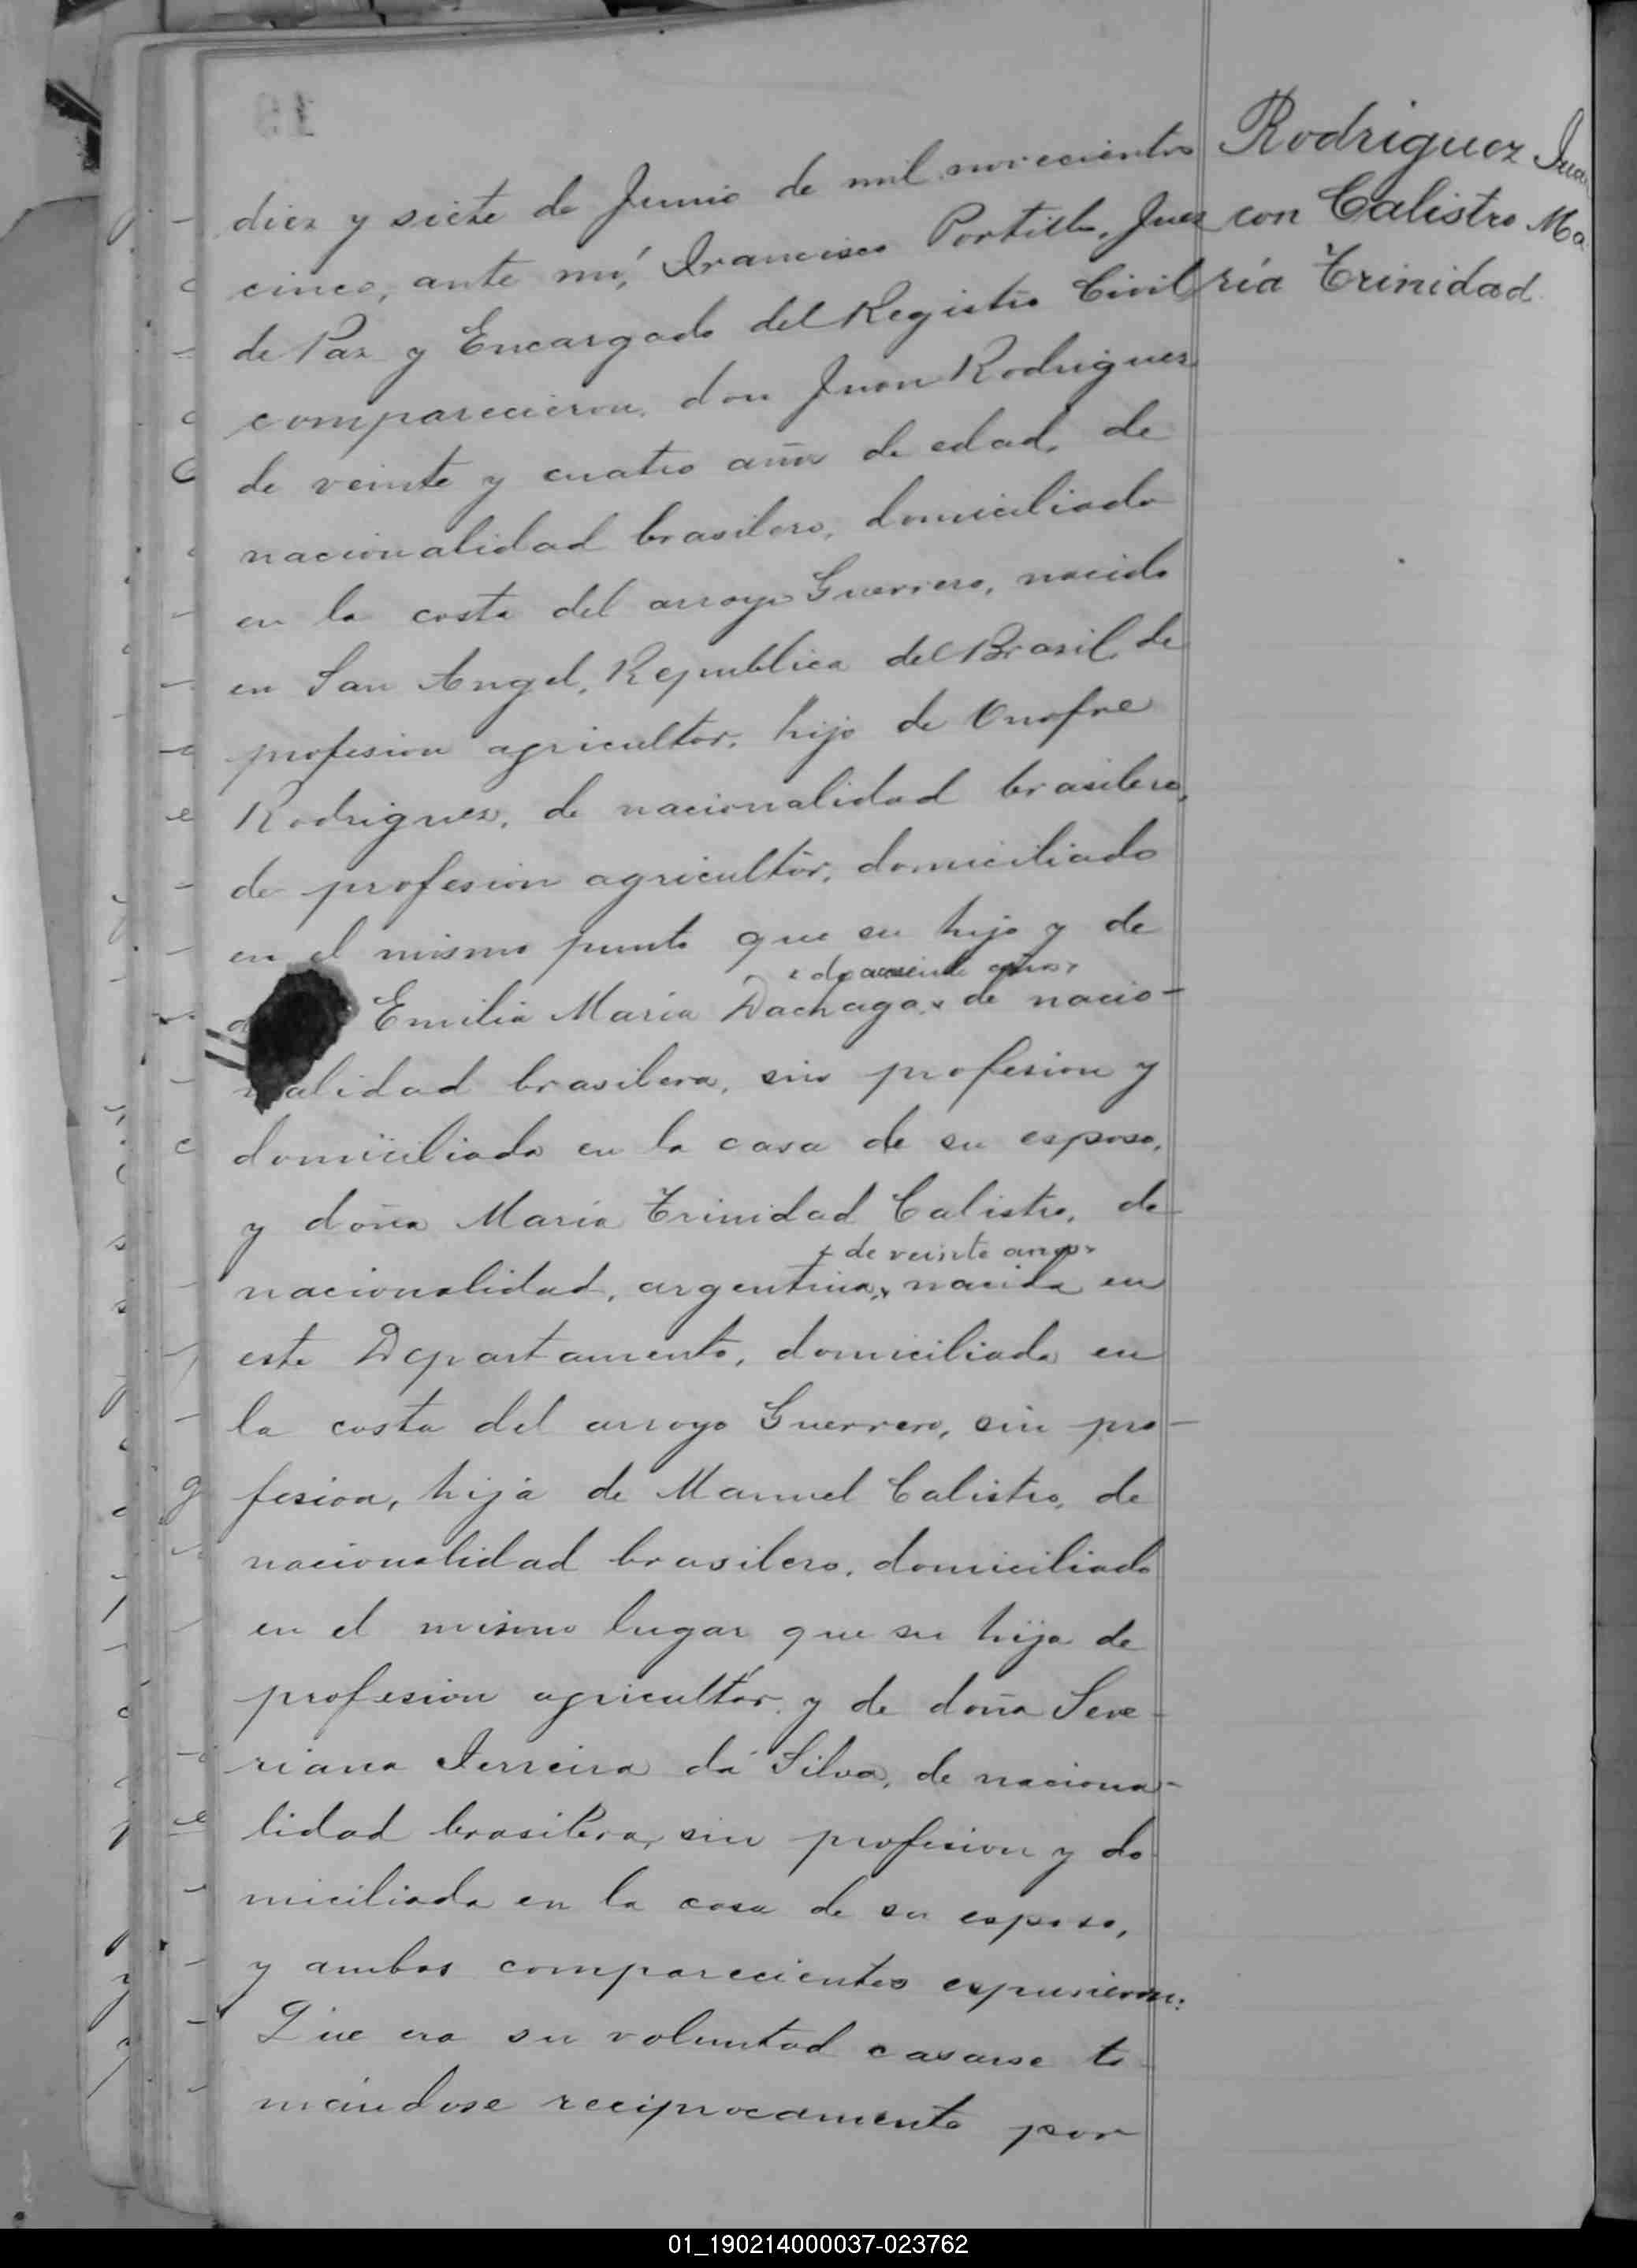 Rodriguez Jua
con Calistro Ma
ría Trinidad.
diez y siete de Junio de mil novecientos
cinco, ante mí, Francisco Portillo, Juez
de Paz y Encargado del Registro Civil
comparecieron, don Juan Rodriguez
de veinte y cuatro años de edad, de
nacionalidad brasilero, domiciliado
en la costa del arroyo Guerrero, nacido
en San Angel, Republica del Brasil, de
profesion agricultor, hijo de Onofre
Rodriguez, de nacionalidad brasilero,
de profesion agricultor, domiciliado
en el mismo punto que su hijo y de
años
Emilia Maria Dachaga, de nacio-
nalidad brasilera, sin profesion y
domiciliada en la casa de su esposo,
y doña Maria Trinidad Calistro, de
de veinte años
nacionalidad, argentina, nacida en
este Departamento, domiciliada en
la costa del arroyo Guerrero, sin pro-
fesion, hija de Manuel Calistro, de
nacionalidad brasilero, domiciliado
en el mismo lugar que su hija de
profesion agricultor, y de doña Seve-
riana Ferreira da Silva, de naciona-
lidad brasilera, sin profesion y do
miciliada en la casa de su esposo,
y ambos comparecientes espusieron:
Que era su voluntad casarse to
mandose reciprocamente por
01_190214000037-023762